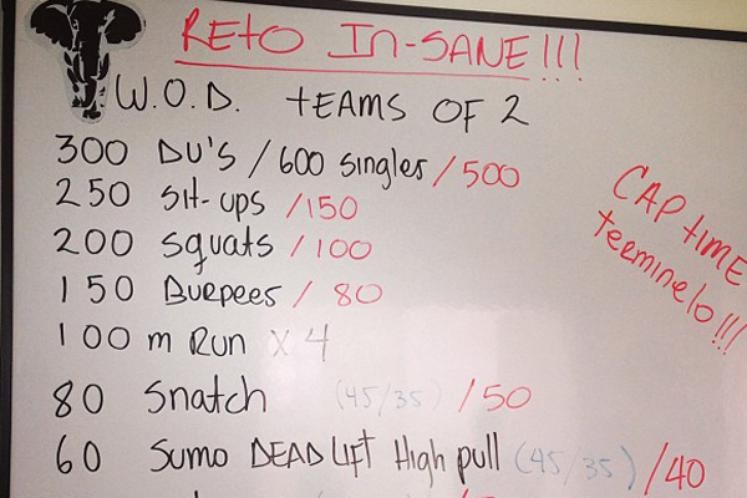 RETO IN-SANE!!!
W.O.D. TEAMS OF 2
300 DU'S / 600 singles / 500
250 Sit-ups / 150
200 squats / 100
150 Burpees / 80
100 m Run x 4
80 Snatch (45/35) / 50
60 Sumo DEADLIFT High pull (45/35) / 40
CAP TIME
Terminelo!!!